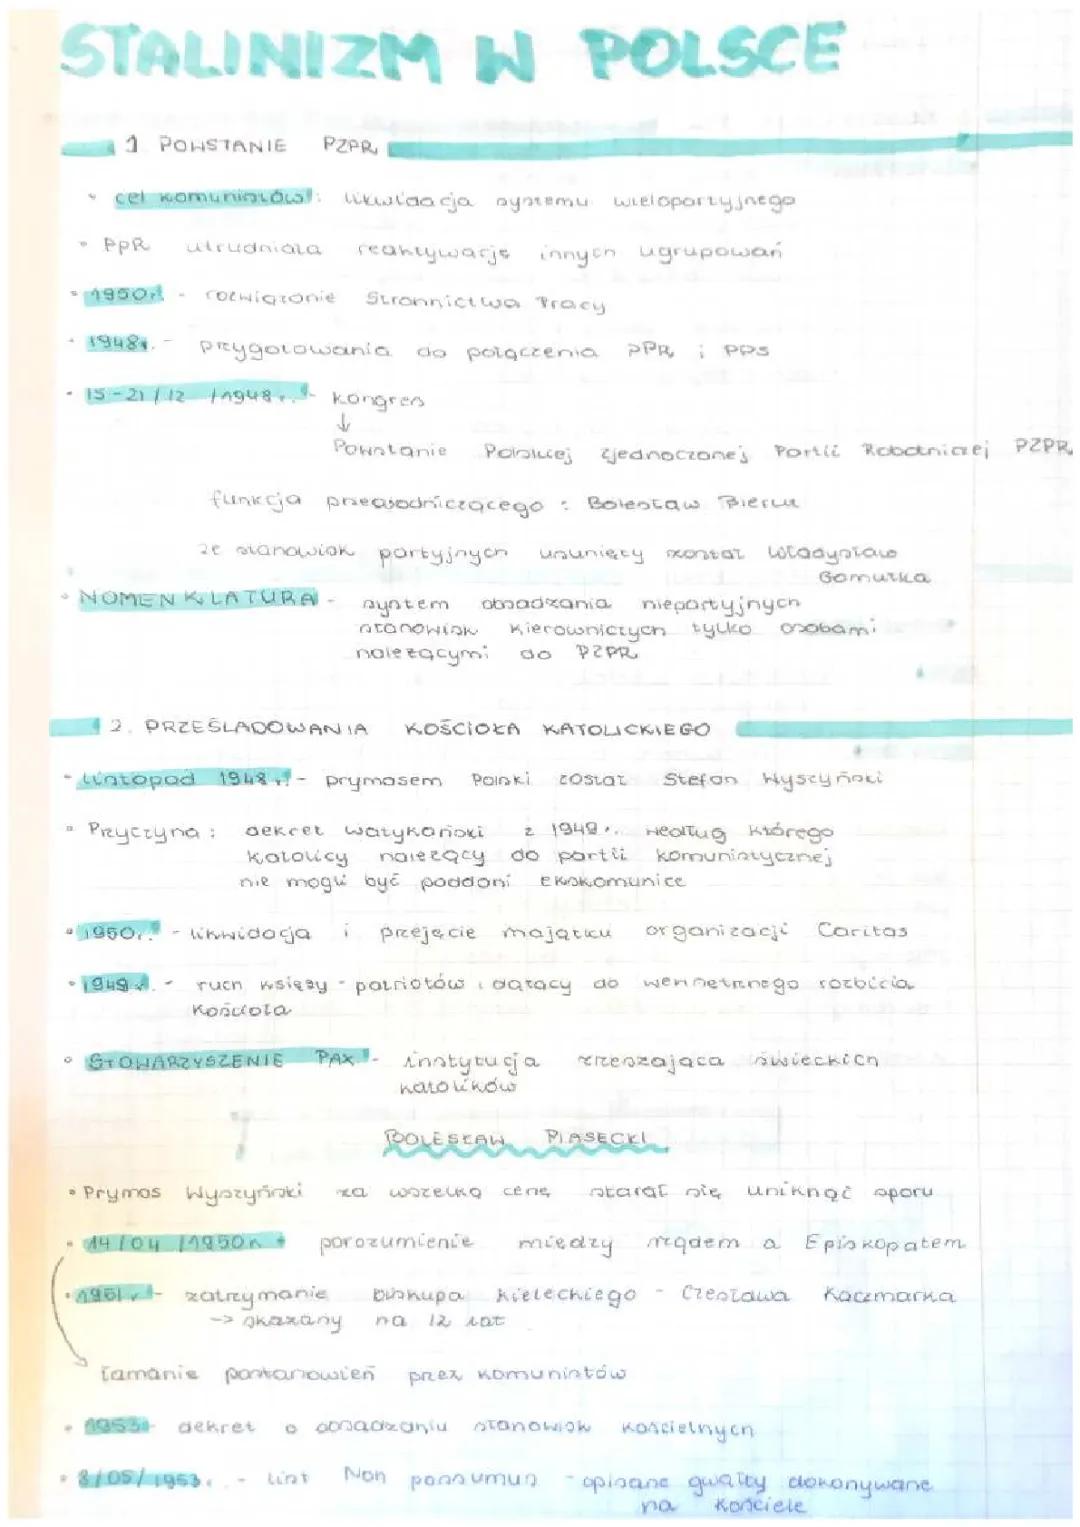 STALINIZM W POLSCE
1. POWSTANIE PZPR
• cel komunistów: likwidacja systemu wielopartyjnego
• PPR utrudniała reaktywację innych ugrupowań
• 1950r. - rozwiązanie Stronnictwa Pracy
• 1948r. - przygotowania do połączenia PPR i PPS
• 15-21/12/1948r. - kongres
↓
Powstanie Polskiej Zjednoczonej Partii Robotniczej PZPR
funkcja przewodniczącego : Bolesław Bierut
ze stanowisk partyjnych usunięty został Władysław
Gomułka
• NOMENKLATURA - system obsadzania niepartyjnych
stanowisk kierowniczych tylko osobami
należącymi do PZPR
2. PRZEŚLADOWANIA KOŚCIOŁA KATOLICKIEGO
• listopad 1948r. - prymasem Polski został Stefan Wyszyński
• Przyczyna : dekret watykański z 1949r. według którego
katolicy należący do partii komunistycznej
nie mogli być poddani ekskomunice
• 1950r. - likwidacja i przejęcie majątku organizacji Caritas
• 1949r. - ruch księży - patriotów, dążący do wewnętrznego rozbicia
Kościoła
• STOWARZYSZENIE PAX - instytucja zrzeszająca świeckich
katolików
BOLESŁAW PIASECKI
• Prymas Wyszyński za wszelką cenę starał się uniknąć sporu
• 14/04/1950r. porozumienie między rządem a Episkopatem
• 1951r. - zatrzymanie biskupa kieleckiego - Czesława Kaczmarka
-> skazany na 12 lat
łamanie postanowień przez komunistów
• 1953r. dekret o obsadzaniu stanowisk kościelnych
• 8/05/1953r. - list Non possumus - opisane gwałty dokonywane
na Kościele